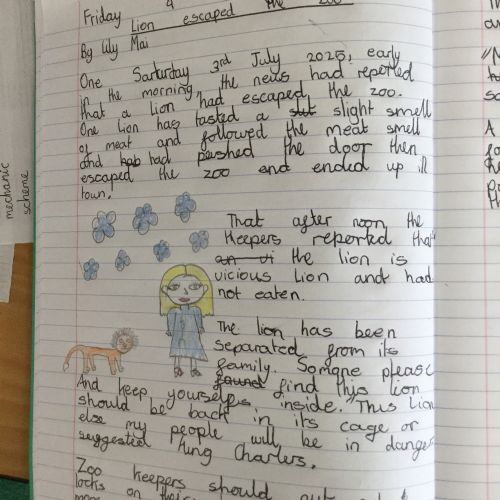 Friday 4
Lion escaped the zoo
By Lily Mai
One Sarturday 3rd July 2025, early
in the morning, the news had reported
that a lion had escaped the zoo.
One Lion has tasted a slight smell
of meat and followed the meat smell
and had peshed the door then
escaped the zoo and ended up in
town.
That after noon the
Keepers reported that
the lion is
vicious Lion and had
not eaten.
The lion has been
separated from its
family. Somone please
found find this lion
And keep yourselfs, inside. "This Lion
should be back in its cage or
else my people will be in danger
suggested King Charlers.
Zoo keepers should put
locks on their
more
mechanic
scheme
"M
A